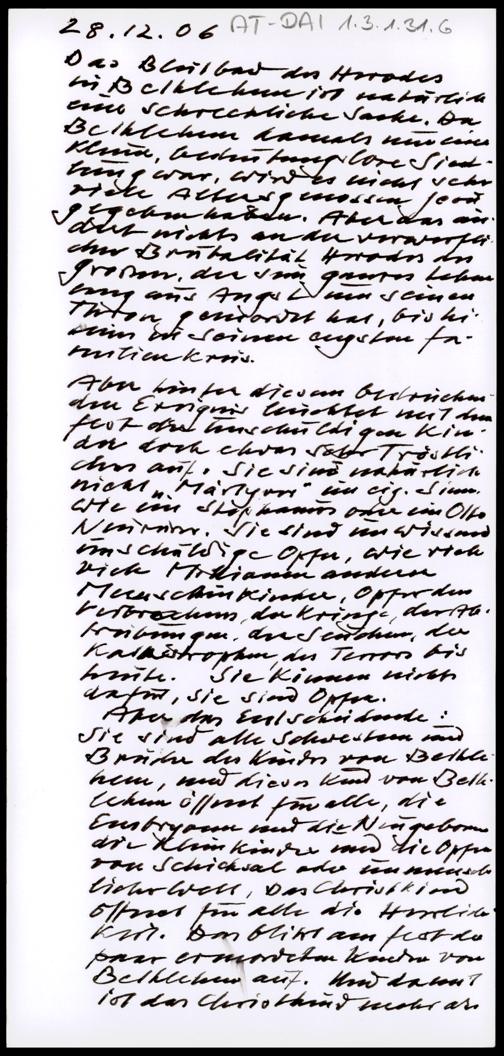 28.12.06 AT-DAI 1.3.1.31.6
Das Blutbad des Herodes
in Bethlehem ist natürlich
eine schreckliche Sache. Da
Bethlehem damals nur eine
kleine, bedeutungslose Sied-
lung war, wird es nicht sehr
viele Altersgenossen Jesu
gegeben haben. Aber das än-
dert nichts an der verwerfli-
chen Brutalität Herodes des
Grossen, der sein ganzes Leben
lang aus Angst um seinen
Thron gemordet hat, bis hi-
nein in seinen engsten Fa-
milienkreis.
Aber hinter diesem bedrücken-
den Ereignis leuchtet mit dem
Fest der Unschuldigen Kin-
der doch etwas sehr Tröstli-
ches auf. Sie sind natürlich
nicht „Märtyrer" im eig. Sinn
wie ein Stephanus oder ein Otto
Neururer. Sie sind unwissend
unschuldige Opfer, wie viele
viele Millionen anderer
Menschenkinder, Opfer des
Verbrechens, der Kriege, der Ab-
treibungen, der Seuchen, der
Katastrophen, des Terrors bis
heute. Sie können nichts
dafür, sie sind Opfer.
Aber das Entscheidende:
Sie sind alle Schwestern und
Brüder des Kindes von Bethle-
hem, und dieses Kind von Beth-
lehem öffnet für alle, die
Embryonen und die Neugeborenen
die Kleinkinder und die Opfer
von Schicksal oder unmensch-
licher Welt, Das Christkind
öffnet für alle die Herrlich-
keit. Das blitzt am Fest der
paar ermordeten Kinder von
Bethlehem auf. Und damit
ist das Christkind mehr als